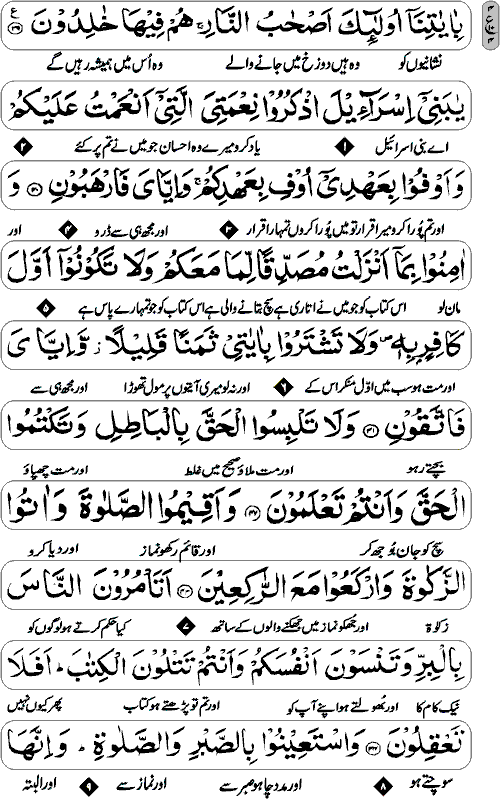 بِاٰیٰتِنَاۤ اُولٰٓىِٕكَ اَصْحٰبُ النَّارِ ۚ هُمْ فِیْهَا خٰلِدُوْنَ ﴿۳۹﴾
نشانیوں کو وہ ہیں دوزخ میں جانے والے وہ اُس میں ہمیشہ رہیں گے
یٰبَنِیْۤ اِسْرَآءِیْلَ اذْكُرُوْا نِعْمَتِیَ الَّتِیْۤ اَنْعَمْتُ عَلَیْكُمْ
اے بنی اسرائیل ۱ یاد کرو میرے وہ احسان جو میں نے تم پر کئے ۲
وَ اَوْفُوْا بِعَهْدِیْۤ اُوْفِ بِعَهْدِكُمْ ۚ وَ اِیَّایَ فَارْهَبُوْنِ ﴿۴۰﴾ وَ
اور تم پُورا کرو میرا قرار تو میں پُورا کروں تمہارا قرار ۳ اور مجھ ہی سے ڈرو ۴ اور
اٰمِنُوْا بِمَاۤ اَنْزَلْتُ مُصَدِّقًا لِّمَا مَعَكُمْ وَلَا تَكُوْنُوْۤا اَوَّلَ
مان لو اس کتاب کو جو میں نے اتاری ہے سچ بتانے والی ہے اس کتاب کو جو تمہارے پاس ہے ۵
كَافِرٍۭ بِهٖ ۪ وَلَا تَشْتَرُوْا بِاٰیٰتِیْ ثَمَنًا قَلِیْلًا ؗ وَّ اِیَّایَ
اور مت ہو سب میں اوّل منکر اس کے ۶ اور نہ لو میری آیتوں پر مول تھوڑا اور مجھ ہی سے
فَاتَّقُوْنِ ﴿۴۱﴾ وَلَا تَلْبِسُوا الْحَقَّ بِالْبَاطِلِ وَ تَكْتُمُوا
بچتے رہو اور مت ملاؤ صحیح میں غلط اور مت چھپاؤ
الْحَقَّ وَ اَنْتُمْ تَعْلَمُوْنَ ﴿۴۲﴾ وَ اَقِیْمُوا الصَّلٰوةَ وَ اٰتُوا
سچ کو جان بُوجھ کر اور قائم رکھو نماز اور دیا کرو
الزَّكٰوةَ وَ ارْكَعُوْا مَعَ الرّٰكِعِیْنَ ﴿۴۳﴾ اَتَاْمُرُوْنَ النَّاسَ
زکوٰۃ اور جُھکو نماز میں جھکنے والوں کے ساتھ ۷ کیا حکم کرتے ہو لوگوں کو
بِالْبِرِّ وَ تَنْسَوْنَ اَنْفُسَكُمْ وَ اَنْتُمْ تَتْلُوْنَ الْكِتٰبَ ؕ اَفَلَا
نیک کام کا اور بُھولتے ہو اپنے آپ کو اور تم تو پڑھتے ہو کتاب پھر کیوں نہیں
تَعْقِلُوْنَ ﴿۴۴﴾ وَ اسْتَعِیْنُوْا بِالصَّبْرِ وَ الصَّلٰوةِ ؕ وَ اِنَّهَا
سوچتے ہو ۸ اور مدد چاہو صبر سے اور نماز سے ۹ اور البتہ